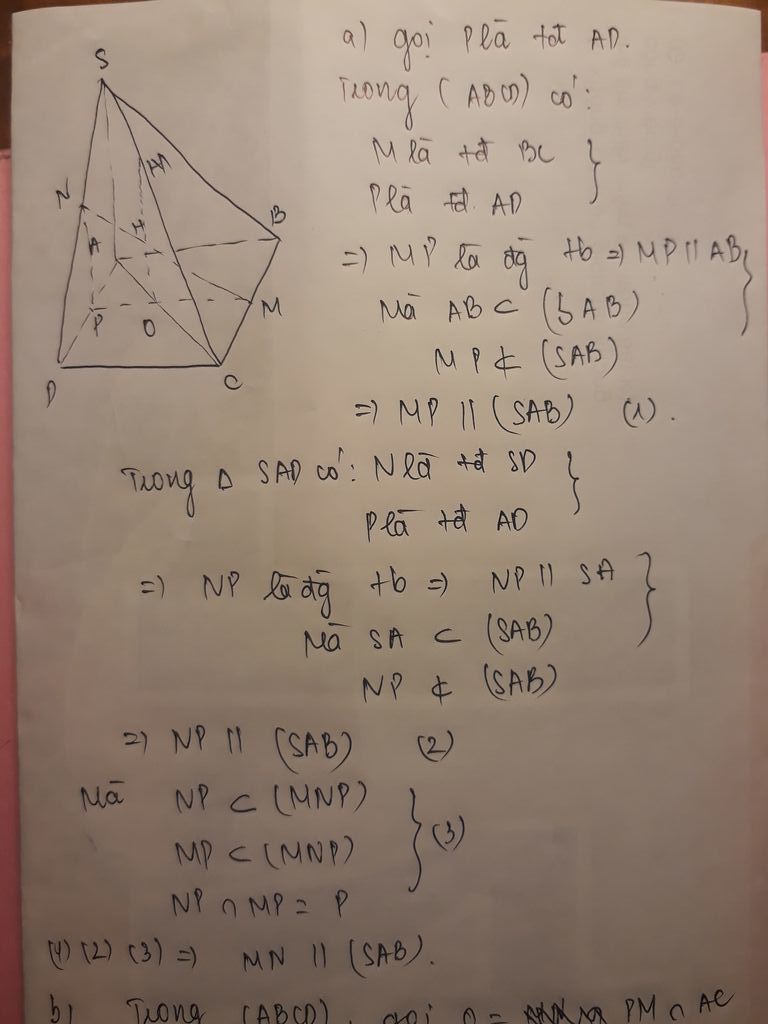 S
N
B
A
I
M
P
O
D
C
a) gọi P là tđ AD.
Trong (ABCD) có:
M là tđ BC
P là tđ AD
=) MP là đg tb =) MP // AB
Mà AB ⊂ (SAB)
MP ⊄ (SAB)
=) MP // (SAB) (1).
Trong Δ SAD có: N là tđ SD
P là tđ AD
=) NP là đg tb =) NP // SA
Mà SA ⊂ (SAB)
NP ⊄ (SAB)
=) NP // (SAB) (2)
Mà NP ⊂ (MNP)
MP ⊂ (MNP)
(3)
NP ∩ MP = P
(1) (2) (3) =) MN // (SAB).
b) Trong (ABCD), gọi O = PM ∩ AC